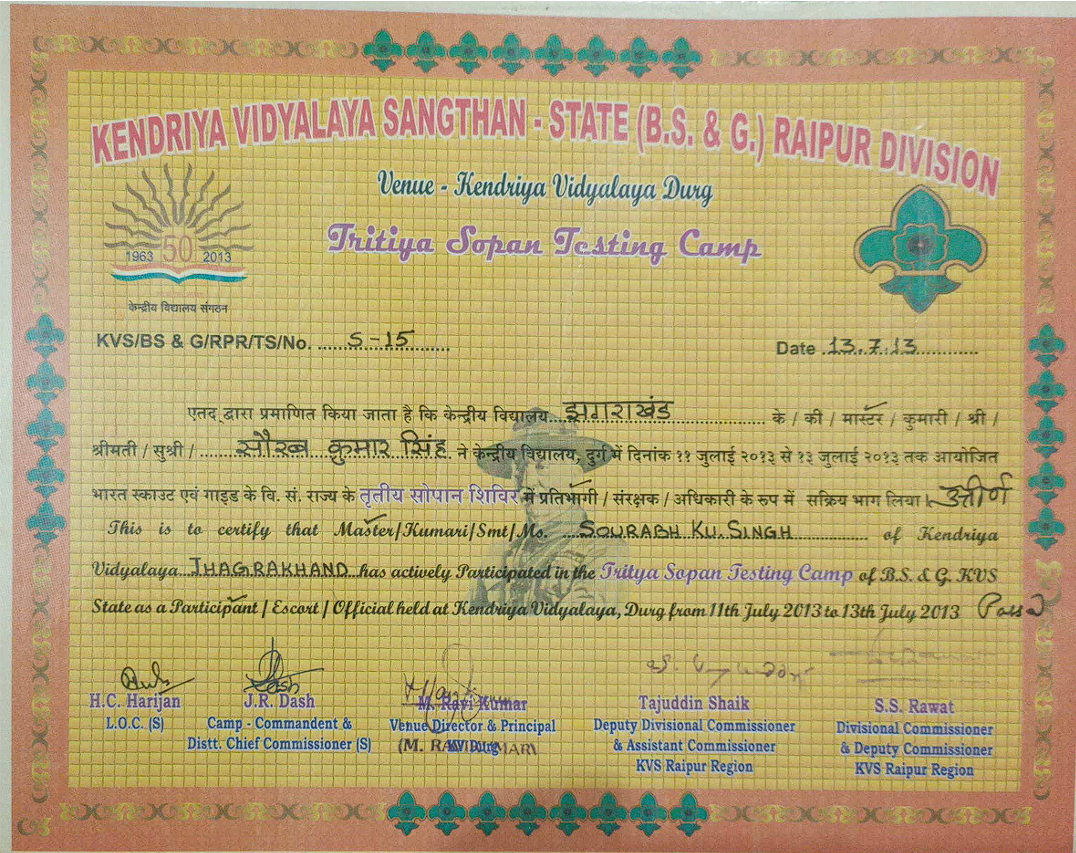 KENDRIYA VIDYALAYA SANGTHAN - STATE (B.S. & G.) RAIPUR DIVISION
Venue - Kendriya Vidyalaya Durg
Tritiya Sopan Testing Camp
1963 50 2013
केन्द्रीय विद्यालय संगठन
KVS/BS & G/RPR/TS/No. S-15
Date 13.7.13
एतद् द्वारा प्रमाणित किया जाता है कि केन्द्रीय विद्यालय झगराखंड के / की / मास्टर / कुमारी / श्री /
श्रीमती / सुश्री / सौरब कुमार सिंह ने केन्द्रीय विद्यालय, दुर्ग में दिनांक ११ जुलाई २०१३ से १३ जुलाई २०१३ तक आयोजित
भारत स्काउट एवं गाइड के वि. सं. राज्य के तृतीय सोपान शिविर में प्रतिभागी / संरक्षक / अधिकारी के रूप में सक्रिय भाग लिया। उत्तीर्ण
This is to certify that Master/Kumari/Smt/Ms. SOURABH KU. SINGH of Kendriya
Vidyalaya JHAGRAKHAND has actively Participated in the Tritya Sopan Testing Camp of B.S. & G. KVS
State as a Participant / Escort / Official held at Kendriya Vidyalaya, Durg from 11th July 2013 to 13th July 2013 Passed
H.C. Harijan
L.O.C. (S)
J.R. Dash
Camp - Commandent &
Distt. Chief Commissioner (S)
M. Ravi Kumar
Venue Director & Principal
KV Durg
(M. RAVI KUMAR)
Tajuddin Shaik
Deputy Divisional Commissioner
& Assistant Commissioner
KVS Raipur Region
S.S. Rawat
Divisional Commissioner
& Deputy Commissioner
KVS Raipur Region